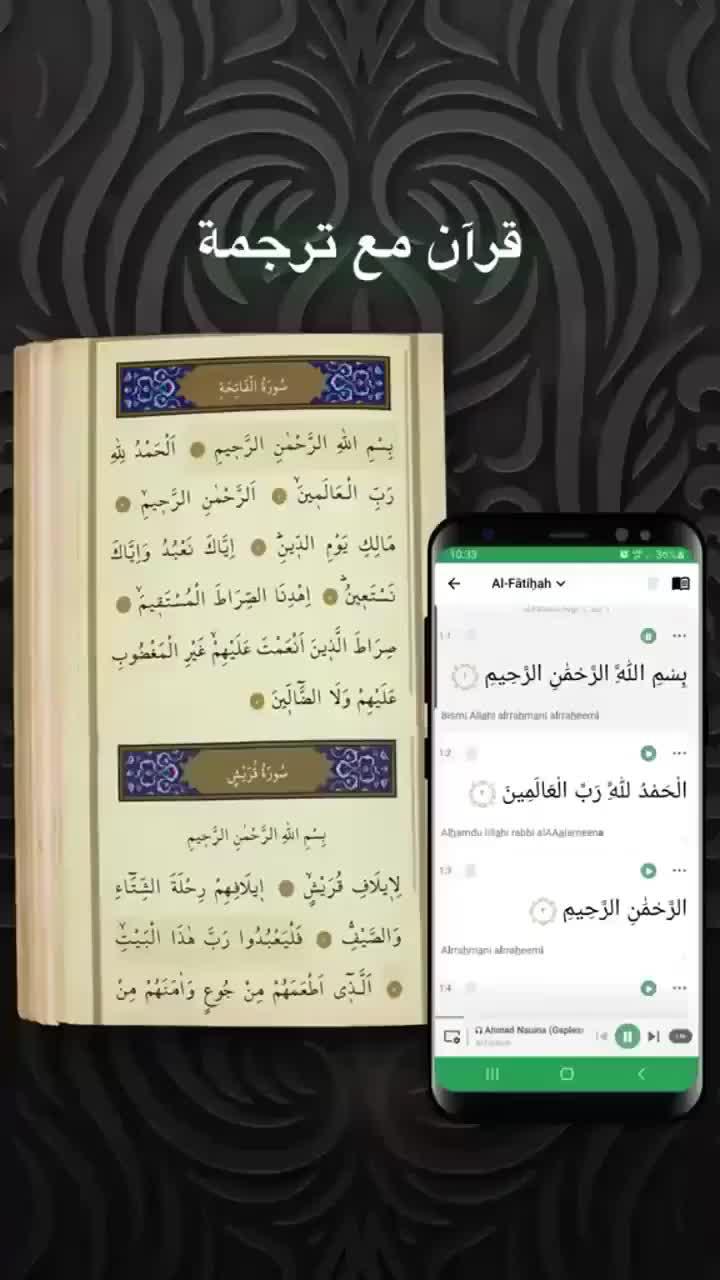 قرآن مع ترجمة
سُورَةُ الْفَاتِحَةِ
بِسْمِ اللهِ الرَّحْمٰنِ الرَّحِيمِ اَلْحَمْدُ لِلّٰهِ
رَبِّ الْعَالَمِينَۙ اَلرَّحْمٰنِ الرَّحِيمِۙ
مَالِكِ يَوْمِ الدِّينِۜ اِيَّاكَ نَعْبُدُ وَاِيَّاكَ
نَسْتَعِينُۜ اِهْدِنَا الصِّرَاطَ الْمُسْتَقِيمَۙ
صِرَاطَ الَّذِينَ اَنْعَمْتَ عَلَيْهِمْۙ غَيْرِ الْمَغْضُوبِ
عَلَيْهِمْ وَلَا الضَّٓالِّينَ
سُورَةُ قُرَيْشٍ
بِسْمِ اللهِ الرَّحْمٰنِ الرَّحِيمِ
لِاِيلَافِ قُرَيْشٍۙ اِيلَافِهِمْ رِحْلَةَ الشِّتَٓاءِ
وَالصَّيْفِۚ فَلْيَعْبُدُوا رَبَّ هٰذَا الْبَيْتِۙ
اَلَّذِٓى اَطْعَمَهُمْ مِنْ جُوعٍ وَاٰمَنَهُمْ مِنْ
10:33 36%
Al-Fātiḥah
1:1
بِسْمِ اللَّهِ الرَّحْمَٰنِ الرَّحِيمِ ١
Bismi Allahi alrrahmani alrraheemi
1:2
الْحَمْدُ لِلَّهِ رَبِّ الْعَالَمِينَ ٢
Alhamdu lillahi rabbi alAAalameena
1:3
الرَّحْمَٰنِ الرَّحِيمِ ٣
Alrrahmani alrraheemi
1:4
Ahmad Nauina (Gaples